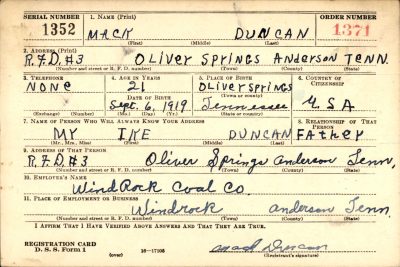 SERIAL NUMBER 1. NAME (Print) ORDER NUMBER
1352 MACK DUNCAN 1371
(First) (Middle) (Last)
2. ADDRESS (Print)
R.F.D.#3 OLIVER SPRINGS ANDERSON TENN.
(Number and street or R. F. D. number) (Town) (County) (State)
3. TELEPHONE 4. AGE IN YEARS 5. PLACE OF BIRTH 6. COUNTRY OF CITIZENSHIP
NONE 21 OLIVER SPRINGS
DATE OF BIRTH (Town or county)
Sept. 6, 1919 Tennessee U.S.A
(Exchange) (Number) (Mo.) (Day) (Yr.) (State or country)
7. NAME OF PERSON WHO WILL ALWAYS KNOW YOUR ADDRESS 8. RELATIONSHIP OF THAT PERSON
MY IKE DUNCAN FATHEY
(Mr., Mrs., Miss) (First) (Middle) (Last)
9. ADDRESS OF THAT PERSON
R.F.D.#3 Oliver Springs anderson Tenn,
(Number and street or R. F. D. number) (Town) (County) (State)
10. EMPLOYER'S NAME
WindRock Coal Co
11. PLACE OF EMPLOYMENT OR BUSINESS
Windrock anderson Tenn.
(Number and street or R. F. D. number) (Town) (County) (State)
I AFFIRM THAT I HAVE VERIFIED ABOVE ANSWERS AND THAT THEY ARE TRUE.
REGISTRATION CARD
D. S. S. Form 1 (over) 16—17105 Mack Duncan